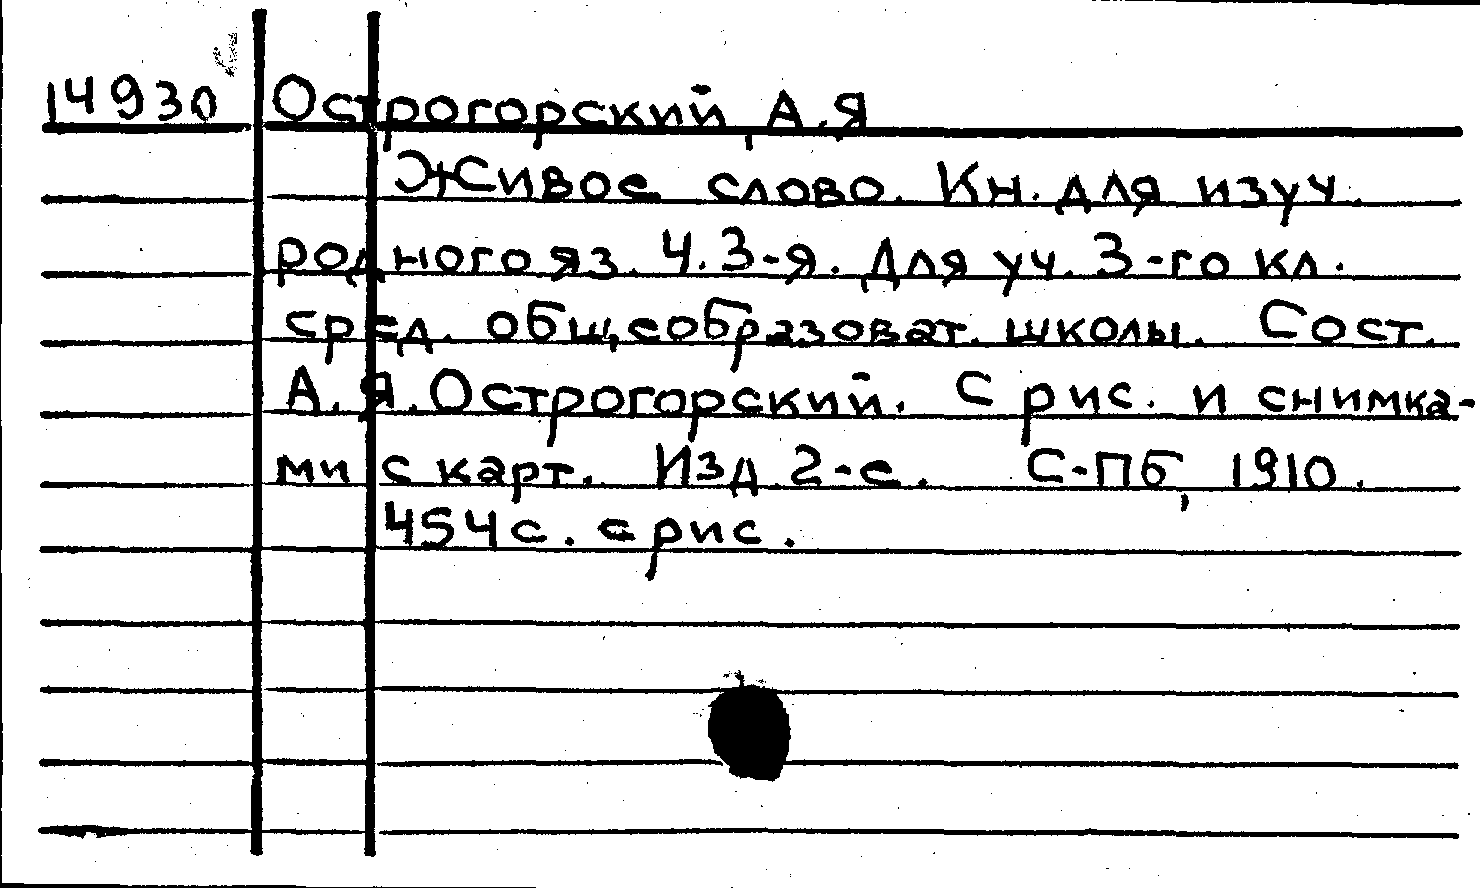 14930 Острогорский, А.Я
Живое слово. Кн. для изуч.
родного яз. Ч. 3-я. Для уч. 3-го кл.
сред. общеобразоват. школы. Сост.
А.Я. Острогорский. С рис. и снимка-
ми с карт. Изд. 2-е. С-Пб, 1910.
454 с. с рис.